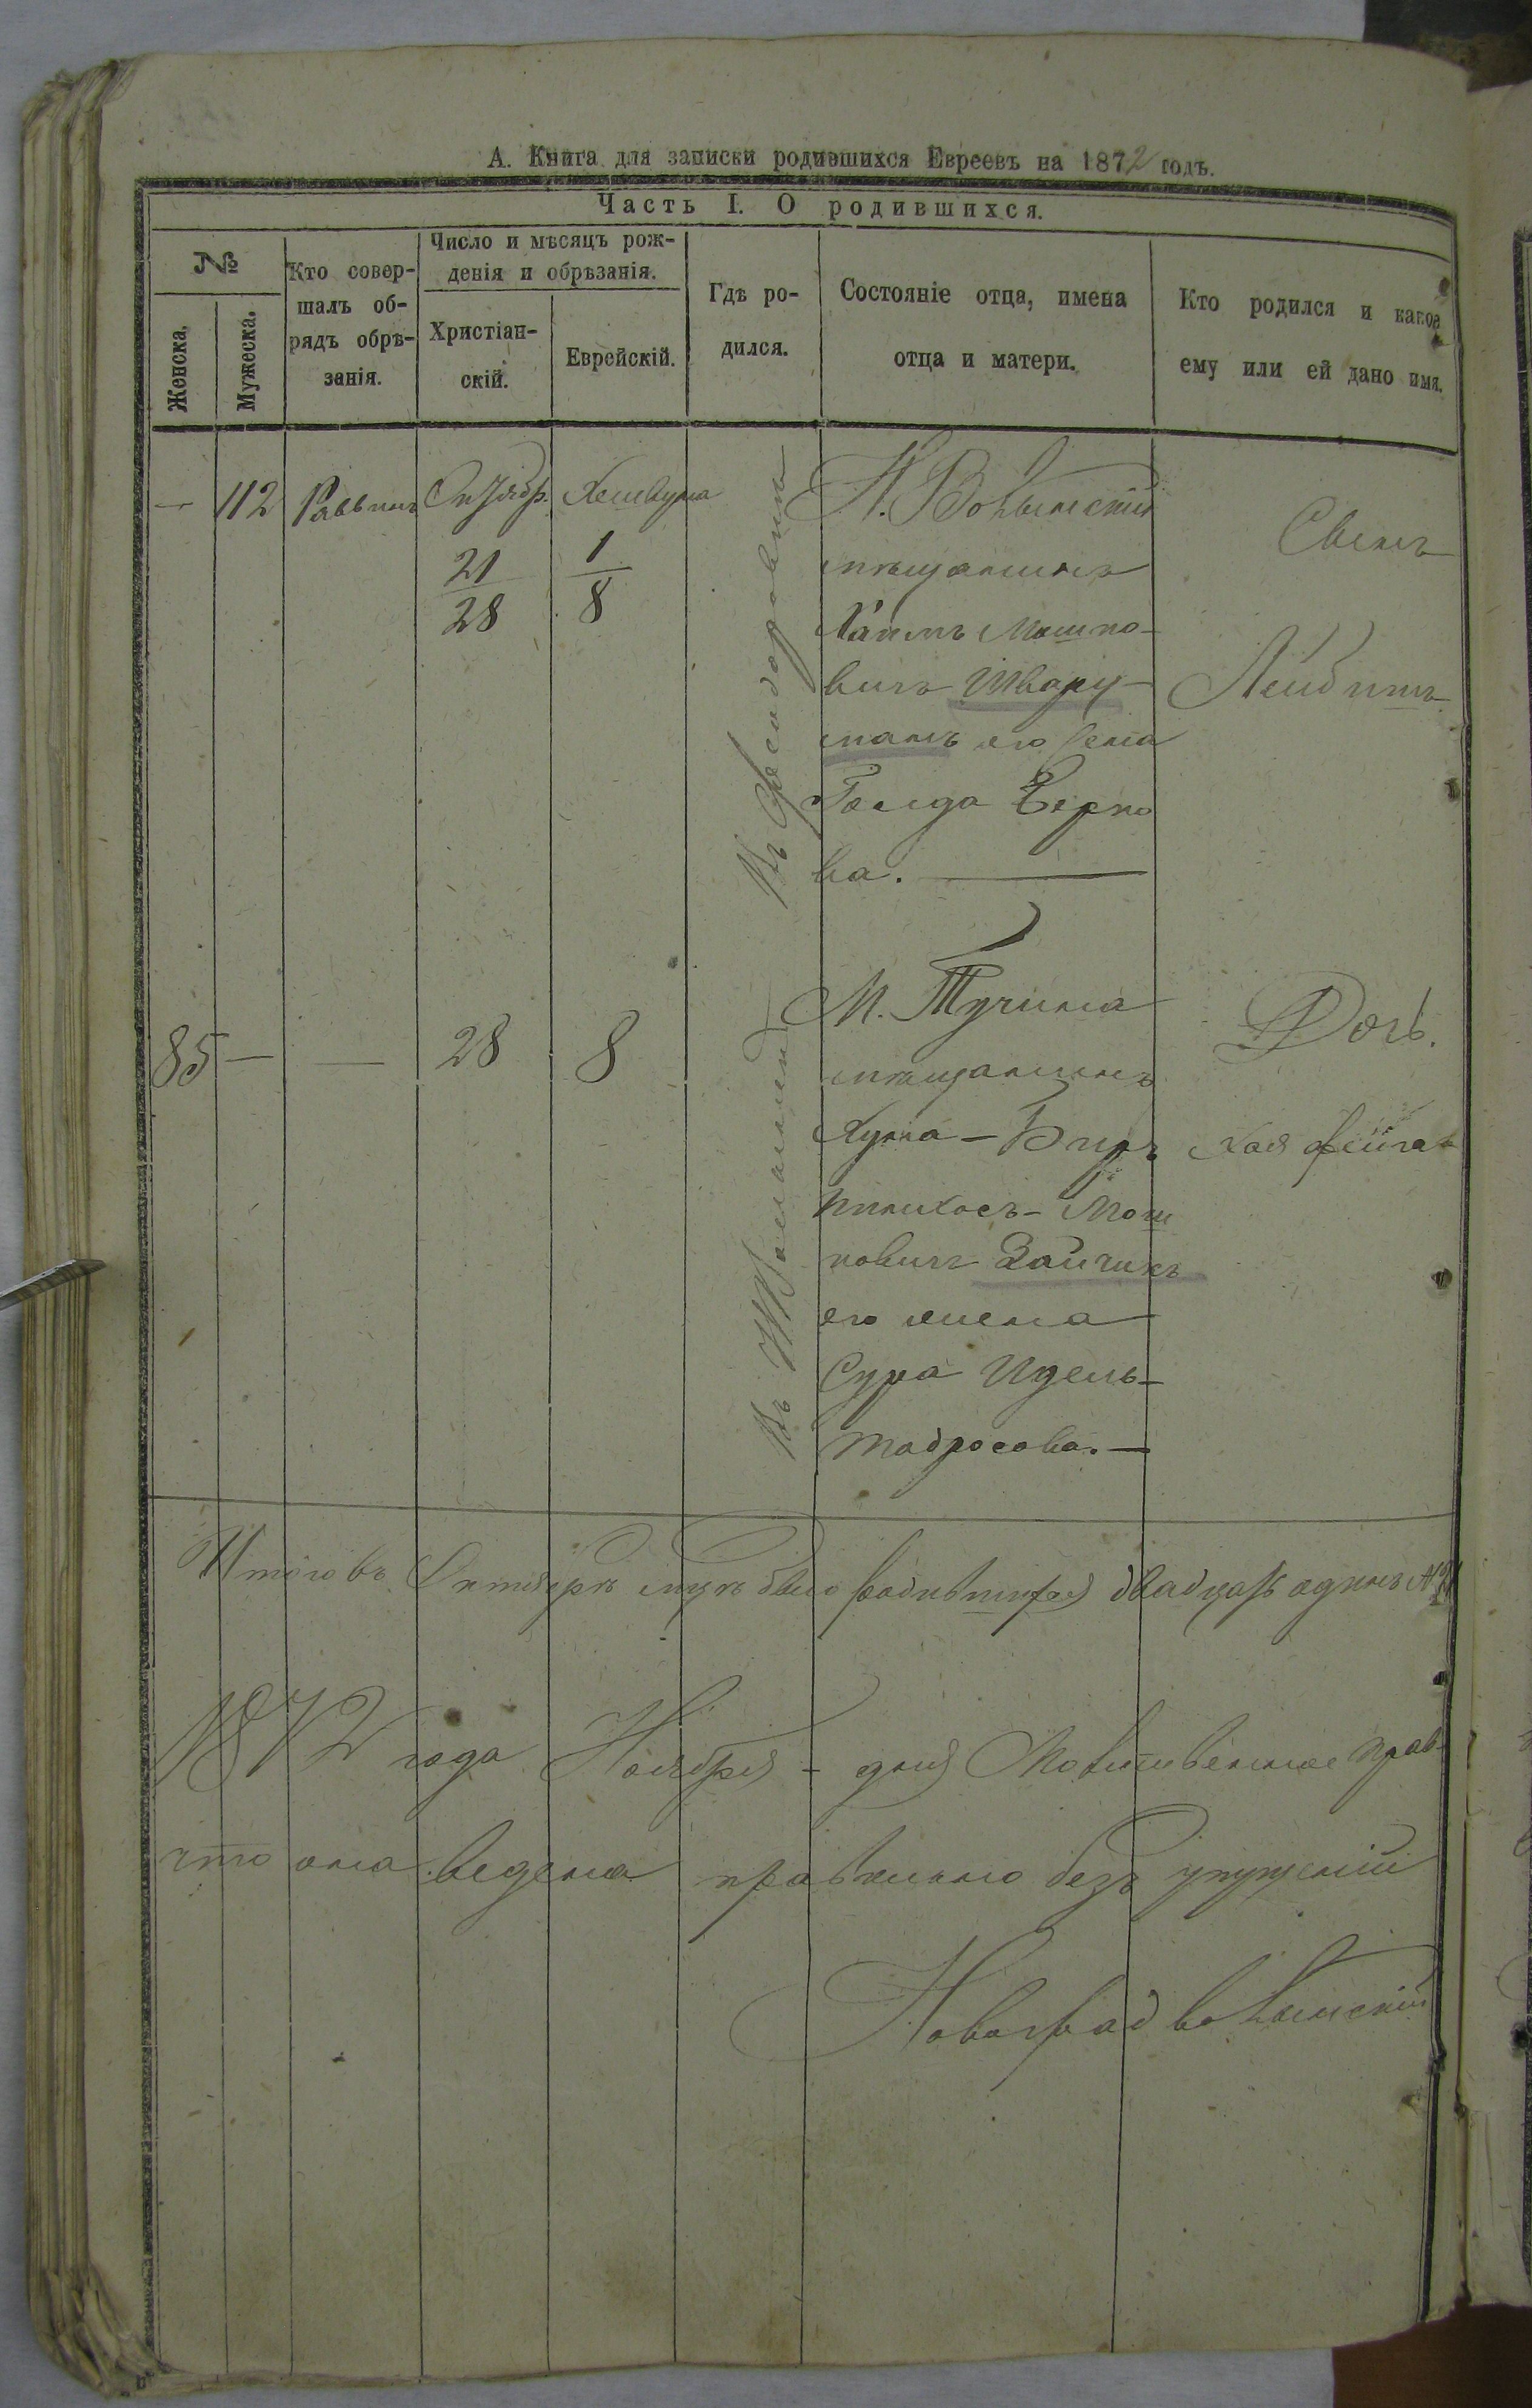 А. Книга для записки родившихся Евреевъ на 1872 годъ.
Часть I. О родившихся.
№
Женска.
Мужеска.
Кто совер-
шалъ об-
рядъ обрѣ-
занія.
Число и мѣсяцъ рож-
денія и обрѣзанія.
Христіан-
скій.
Еврейскій.
Гдѣ ро-
дился.
Состояніе отца, имена
отца и матери.
Кто родился и какое
ему или ей дано имя.
— 112 Раввинъ Октябр. Хешвума
21
28
1
8
Н. Волынскій
мѣщанинъ
Хаимъ Мошко-
вичъ Шварц-
манъ его жена
Голда Берко
ва. —
Сынъ
Лейбишъ
85 — — 28 8
М. Тучина
мѣщанинъ
Хуна - Биръ
Пинхосъ - Мош
ковичъ Зайчикъ
его жена
Сура Идель-
Тодросова. —
Дочь.
Хая Фейга
Итого въ Октябрѣ мцѣ было родившихся двадцать одинъ
1872 года Ноября - дня
что она ведена правильно безъ упущеній
Новоград волынскій